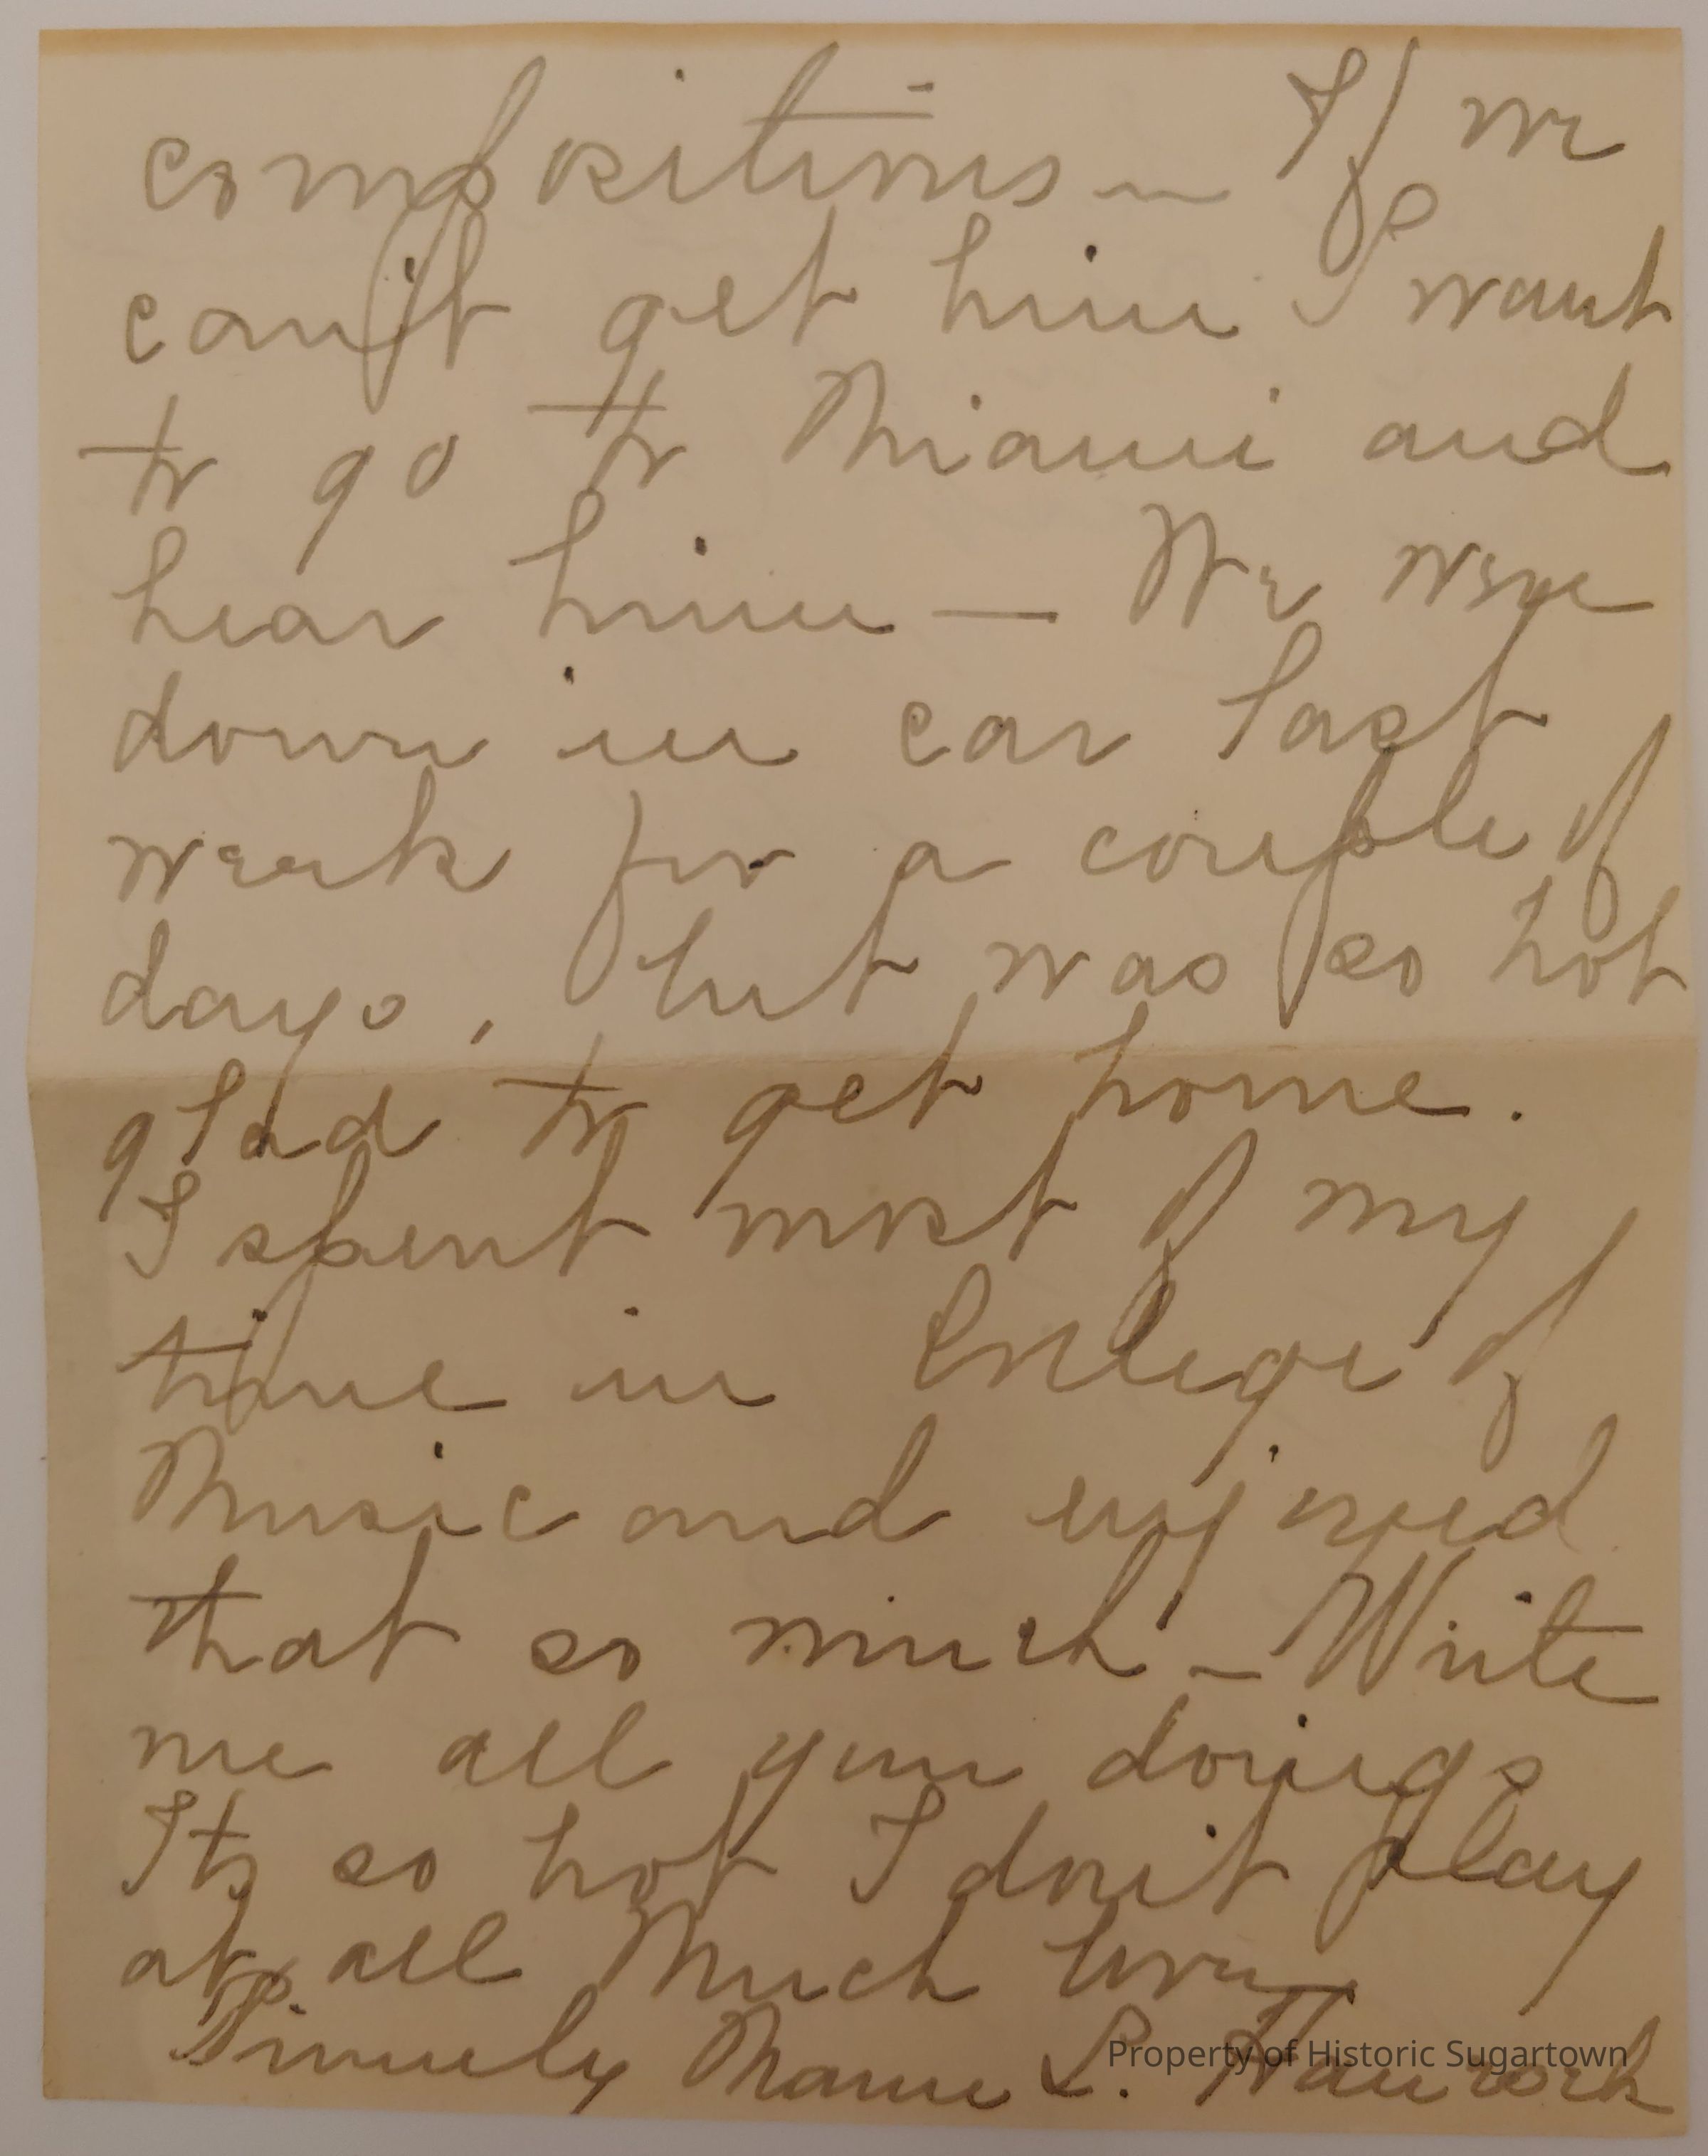 compositions — If we
can't get him I want
to go to Miami and
hear him — We were
down in car last
week for a couple of
days, but was so hot
glad to get home.
I spent most of my
time in College of
Music and enjoyed
that so much — Write
me all your doings
Its so hot I don't play
at all Much love
Sincerely Mame L. Hancock
Property of Historic Sugartown